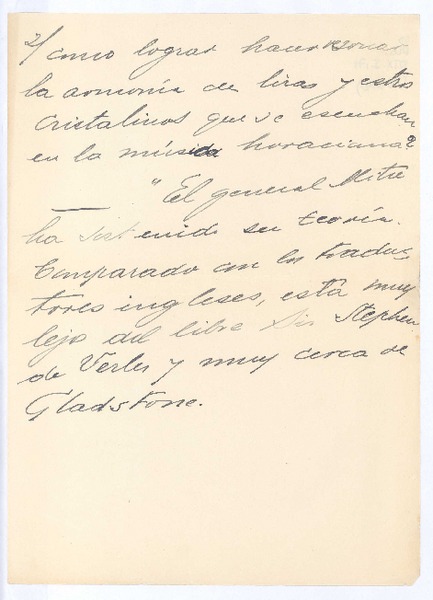 2/ como lograr hacer resonar
la armonía de liras y
cristalinos que se escuchan
en la música horaciana?
"El general Mitre
ha sostenido su teoría.
Comparado con los traduc
tores ingleses, está muy
lejo del libre Sir Stephen
de Verles y muy cerca de
Gladstone.